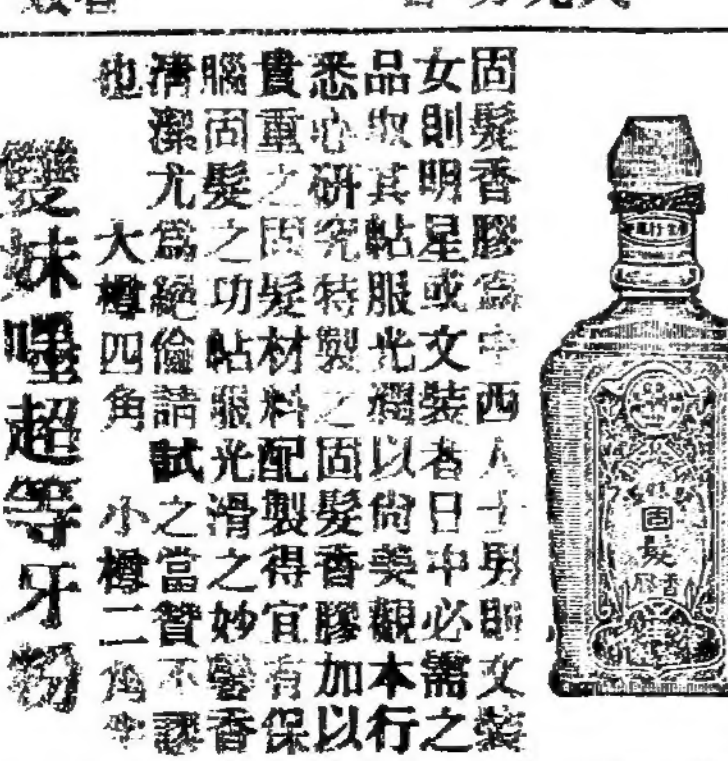 固髮香膠為中西人士男則文裝
女則明星或文裝者日中必需之
品取其帖服光潤以尙美觀本行
悉心研究特製之固髮香膠加以
貴重之固髮材料配製得宜有保
腦固髮之功帖服光滑之妙馨香
清潔尤為絕倫請試之當贊不謬
也 大樽四角 小樽二角半
雙妹嚜超等牙粉
固髮香膠